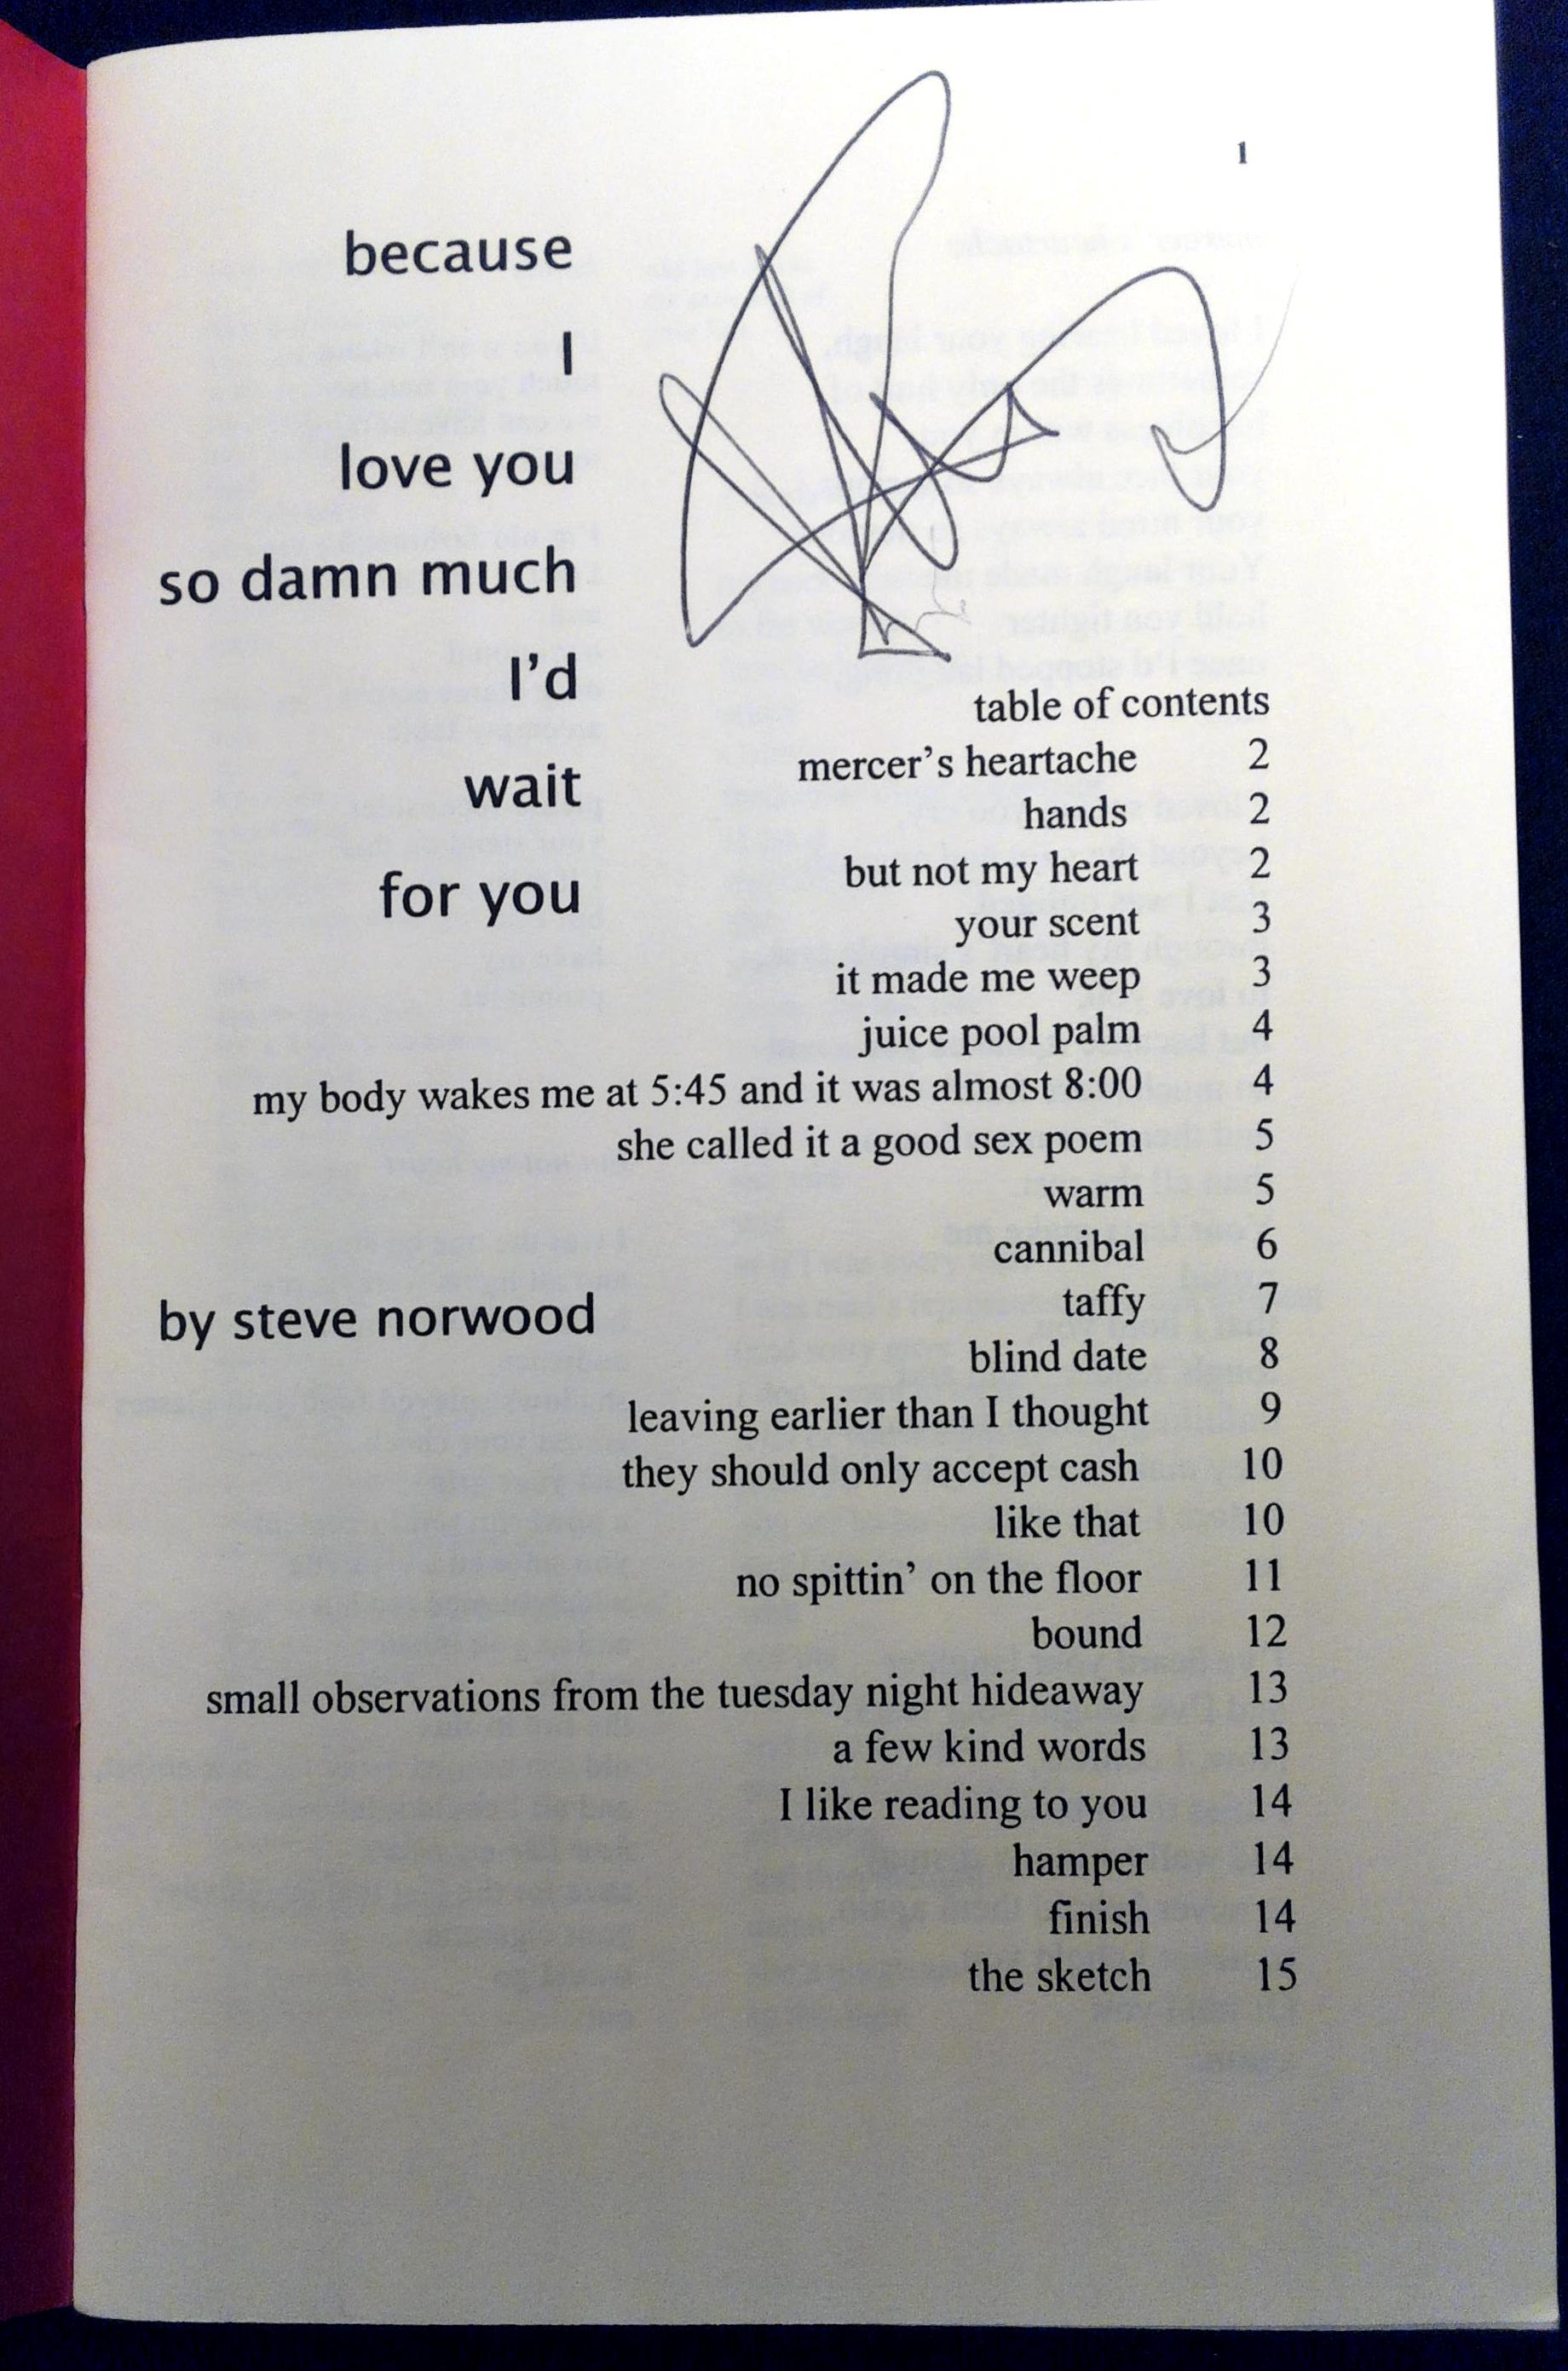 1
because
I
love you
so damn much
I'd
wait
for you
by steve norwood
table of contents
mercer's heartache 2
hands 2
but not my heart 2
your scent 3
it made me weep 3
juice pool palm 4
my body wakes me at 5:45 and it was almost 8:00 4
she called it a good sex poem 5
warm 5
cannibal 6
taffy 7
blind date 8
leaving earlier than I thought 9
they should only accept cash 10
like that 10
no spittin' on the floor 11
bound 12
small observations from the tuesday night hideaway 13
a few kind words 13
I like reading to you 14
hamper 14
finish 14
the sketch 15